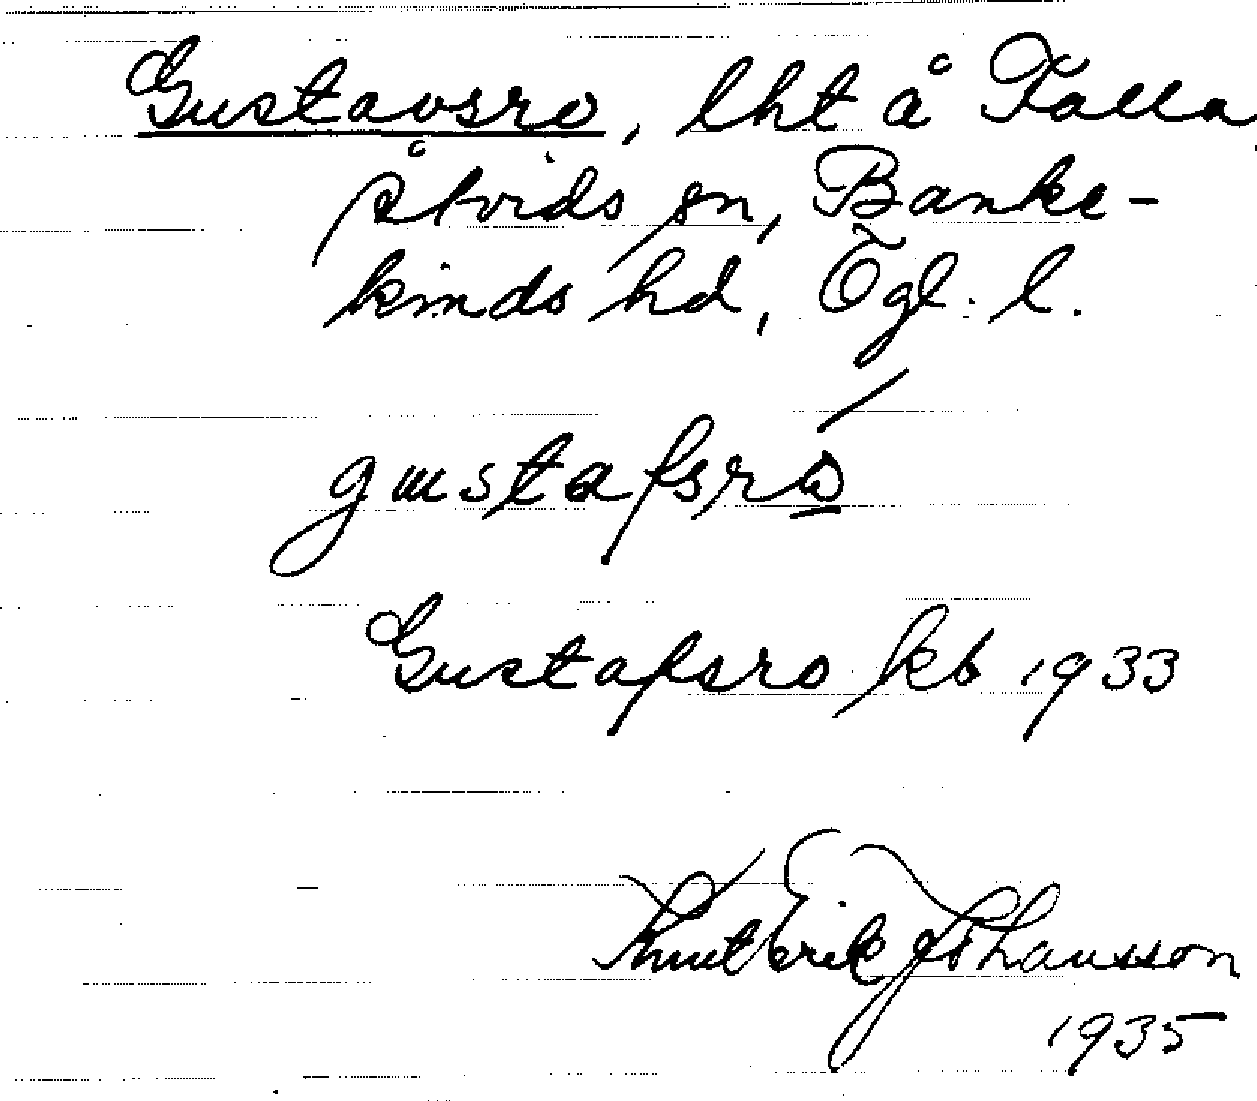 Gustavsro, lht å Falla
Åtvids sn, Banke-
kinds hd, Ögl. l.
gustafsrò
Gustafsro kb 1933
Knut Erik Johansson
1935